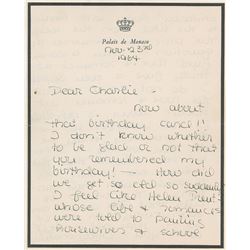 Palais de Monaco
Nov. 23rd
1964
Dear Charlie -
now about
that birthday card!!
I don't know whether
to be glad or not that
you remembered my
birthday! - How did
we get so old so suddenly
I feel like Helen
whose life & romances
were told to
housewives & school